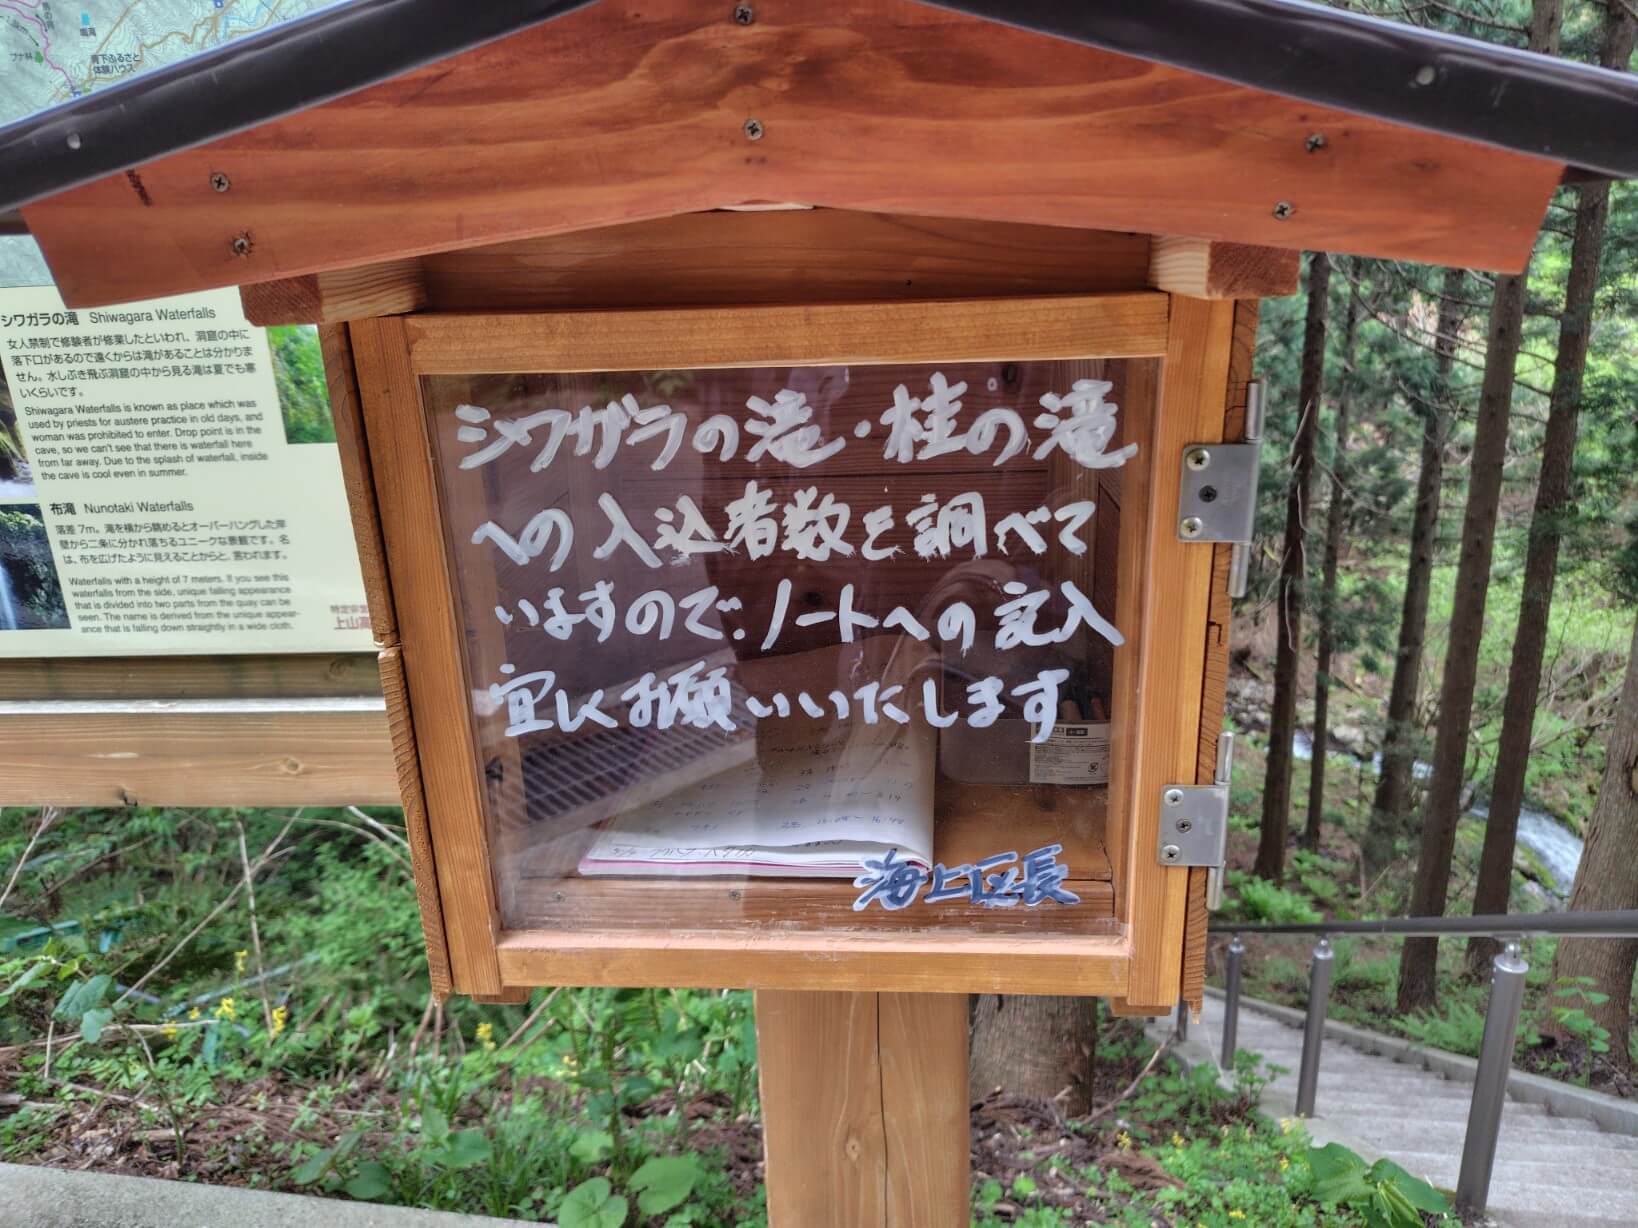 鳴滝
ブナ林
体験ハウス
シワガラの滝 Shiwagara Waterfalls
女人禁制で修験者が修業したといわれ、洞窟の中に
落下口があるので遠くからは滝があることは分かりま
せん。水しぶき飛ぶ洞窟の中から見る滝は夏でも寒
いくらいです。
Shiwagara Waterfalls is known as place which was
used by priests for austere practice in old days, and
woman was prohibited to enter. Drop point is in the
cave, so we can't see that there is waterfall here
from far away. Due to the splash of waterfall, inside
the cave is cool even in summer.
布滝 Nunotaki Waterfalls
落差7m。滝を横から眺めるとオーバーハングした岸
壁から二条に分かれ落ちるユニークな景観です。名
は、布を広げたように見えることからと、言われます。
Waterfalls with a height of 7 meters. If you see this
waterfalls from the side, unique falling appearance
that is divided into two parts from the quay can be
seen. The name is derived from the unique appear-
ance that is falling down straightly in a wide cloth.
シワガラの滝・桂の滝
への入込者数を調べて
いますので、ノートへの記入
宜しくお願いいたします
海上区長